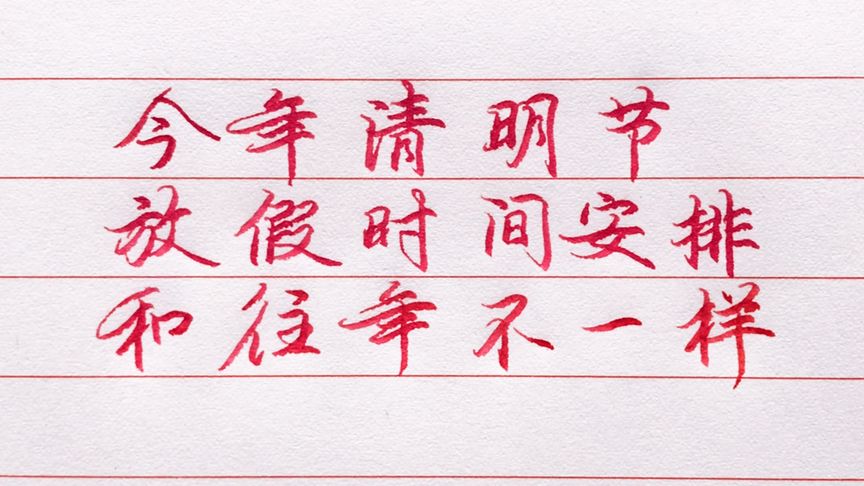 今年清明节
放假时间安排
和往年不一样